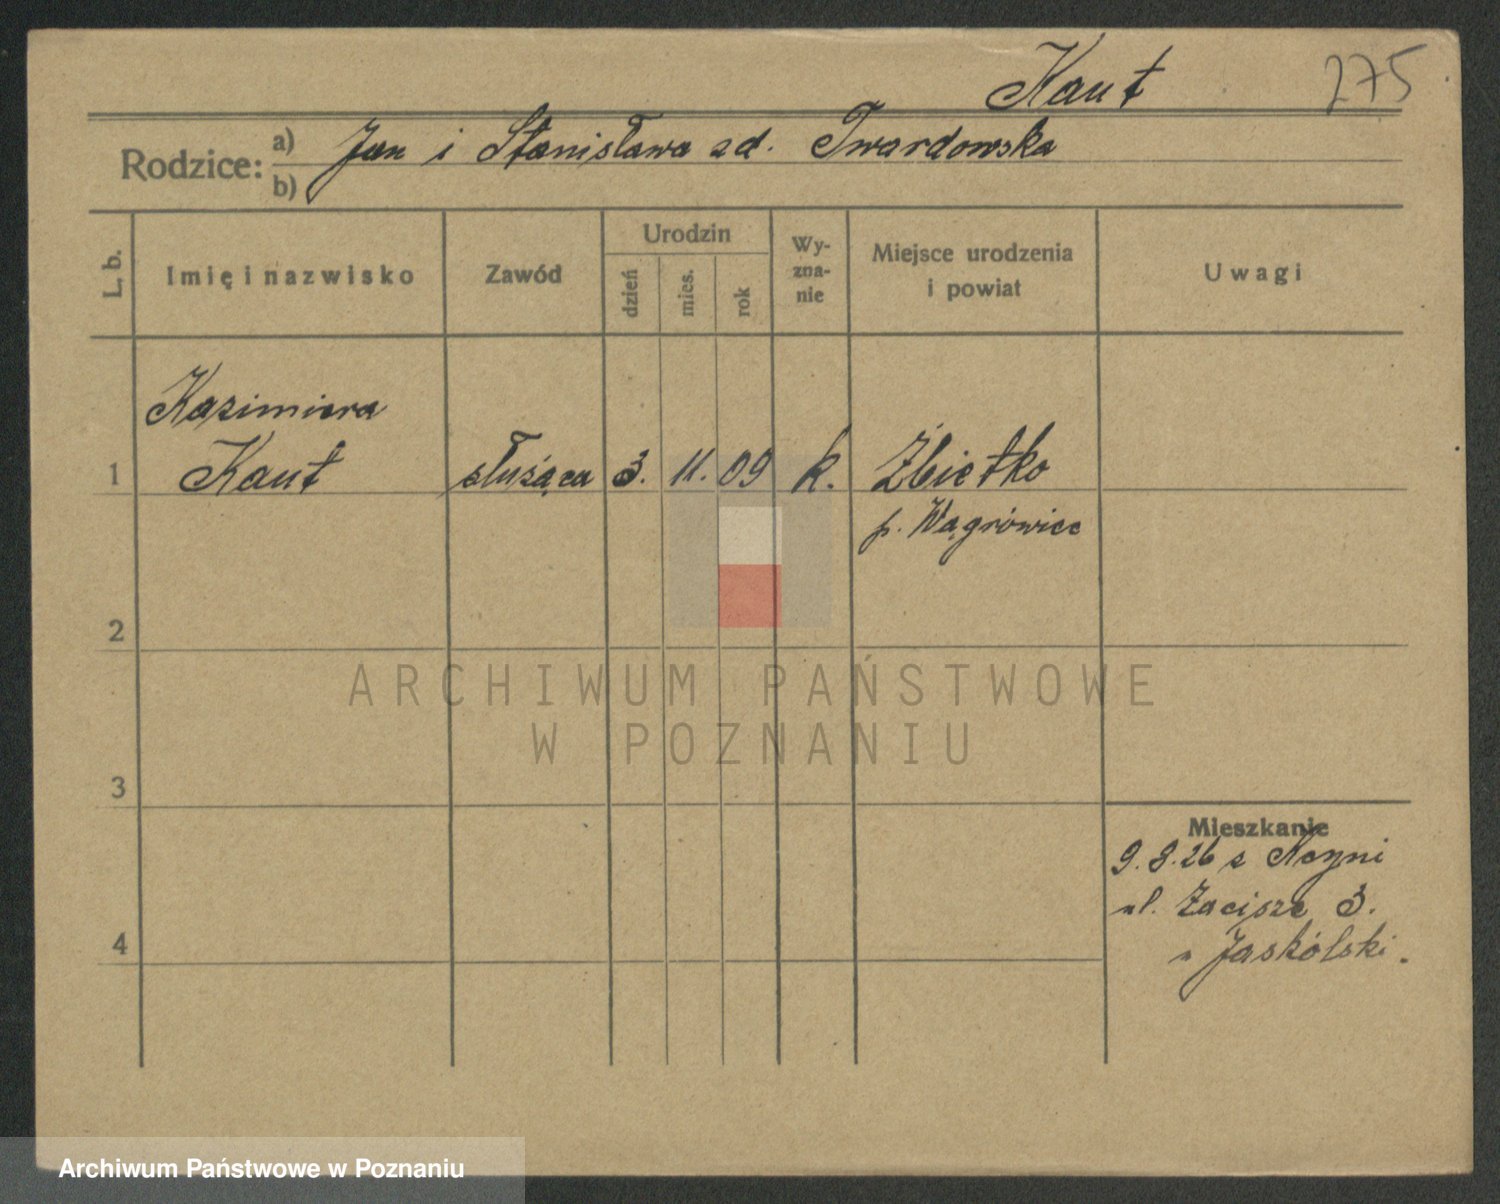 Kaut
275
Rodzice:
a) Jan i Stanisława zd. Twardowska
b)
L. b.
Imię i nazwisko
Zawód
Urodzin
dzień
mies.
rok
Wy-
zna-
nie
Miejsce urodzenia
i powiat
Uwagi
Kazimiera
1 Kaut służąca 3. 11. 09 k. Żbietko
p. Wągrówiec
2
ARCHIWUM PAŃSTWOWE
W POZNANIU
3
Mieszkanie
9.8.26 z Kcyni
ul. Zacisze 3.
Jaskólski.
4
Archiwum Państwowe w Poznaniu